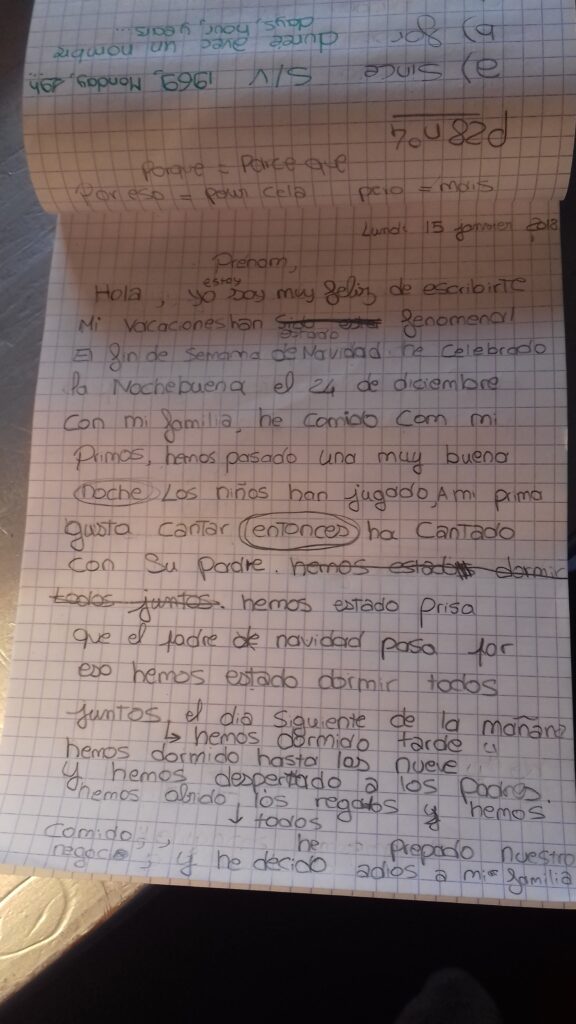 a) since S/V 1969, Monday, 19h
b) for durée avec un nombre
days, hour, years...
p28 n°4
Porque = Parce que
Por eso = pour cela pero = mais
Lundi 15 janvier 2018
Prenom,
Hola, yo estoy soy muy feliz de escribirte
Mi vacaciones han estado fenomenal
El fin de semana de Navidad he celebrado
la Nochebuena el 24 de diciembre
con mi familia, he comido com mi
primos, hemos pasado una muy buena
noche Los niños han jugado, A mi prima
gusta cantar entonces ha cantado
con su padre. hemos estado dormir
todos juntos. hemos estado prisa
que el padre de navidad pasa por
eso hemos estado dormir todos
juntos, el dia siguiente de la mañana
↳ hemos dormido tarde y
hemos dormido hasta las nueve
y hemos despertado a los padres.
hemos abido los regalos y hemos
↓ todos
comido, he prepado nuestro
y he decido adios a mi familia